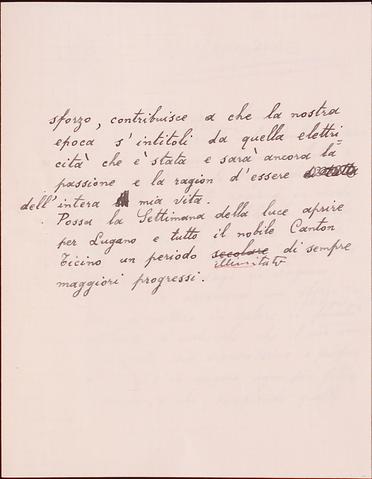 sforzo, contribuisce a che la nostra
epoca s'intitoli da quella elettri=
cità che è stata e sarà ancora la
passione e la ragion d'essere
dell'intera mia vita.
Possa la Settimana della luce aprire
per Lugano e tutto il nobile Canton
Ticino un periodo secolare di sempre
illimitato
maggiori progressi.